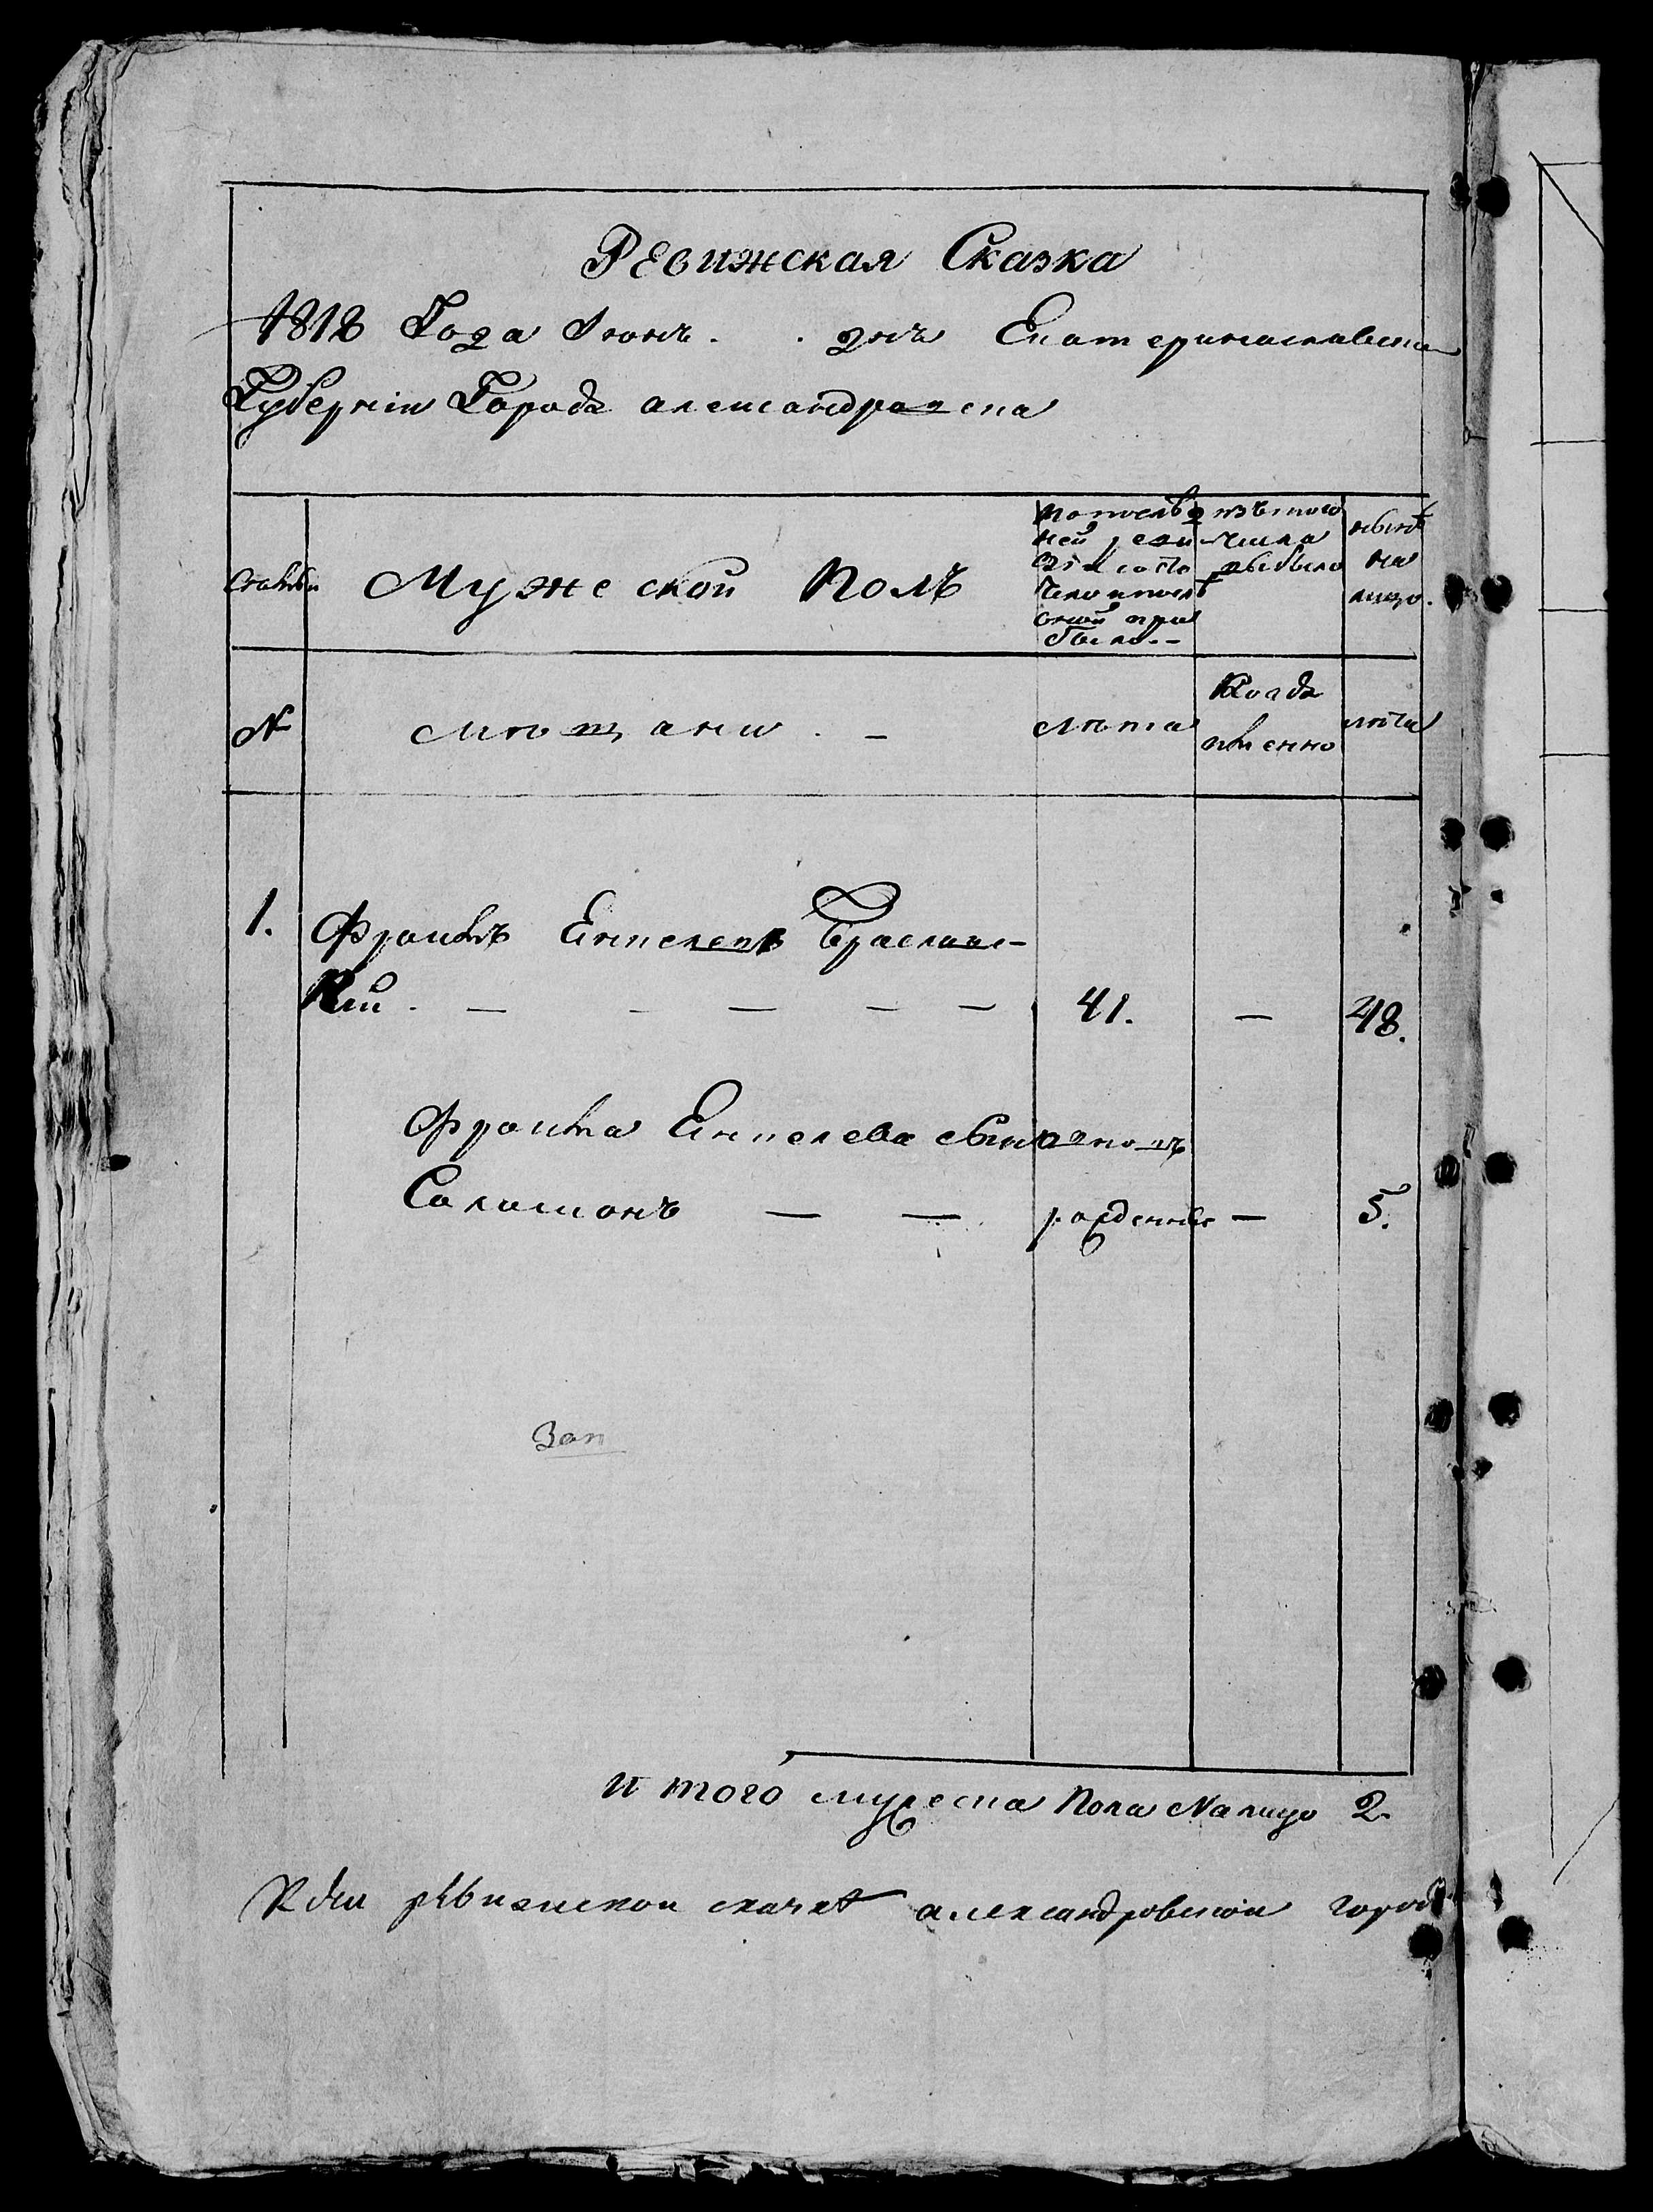 Ревижская Сказка
1818 Года Июнь . . днь Екатеринославской
Губернiи Города александровска
Статьи
Мужеской Полъ
По послѣд
ней реви
зiи состо
яло и послѣ
оной при
было.-
изъ того
числа
выбыло
нынѣ
на
лицо.
№
мѣщани . -
лѣта
Когда
именно
лѣта
1. Фроимъ Енкелевъ Браслав-
Кiй . — - — - — 41. — 48.
Фроима Енкелева сынъ
Саламонъ — — рожденные — 5.
Зап
и того мужеска Пола Налицо 2.
К сей ревизской сказкѣ александровской город